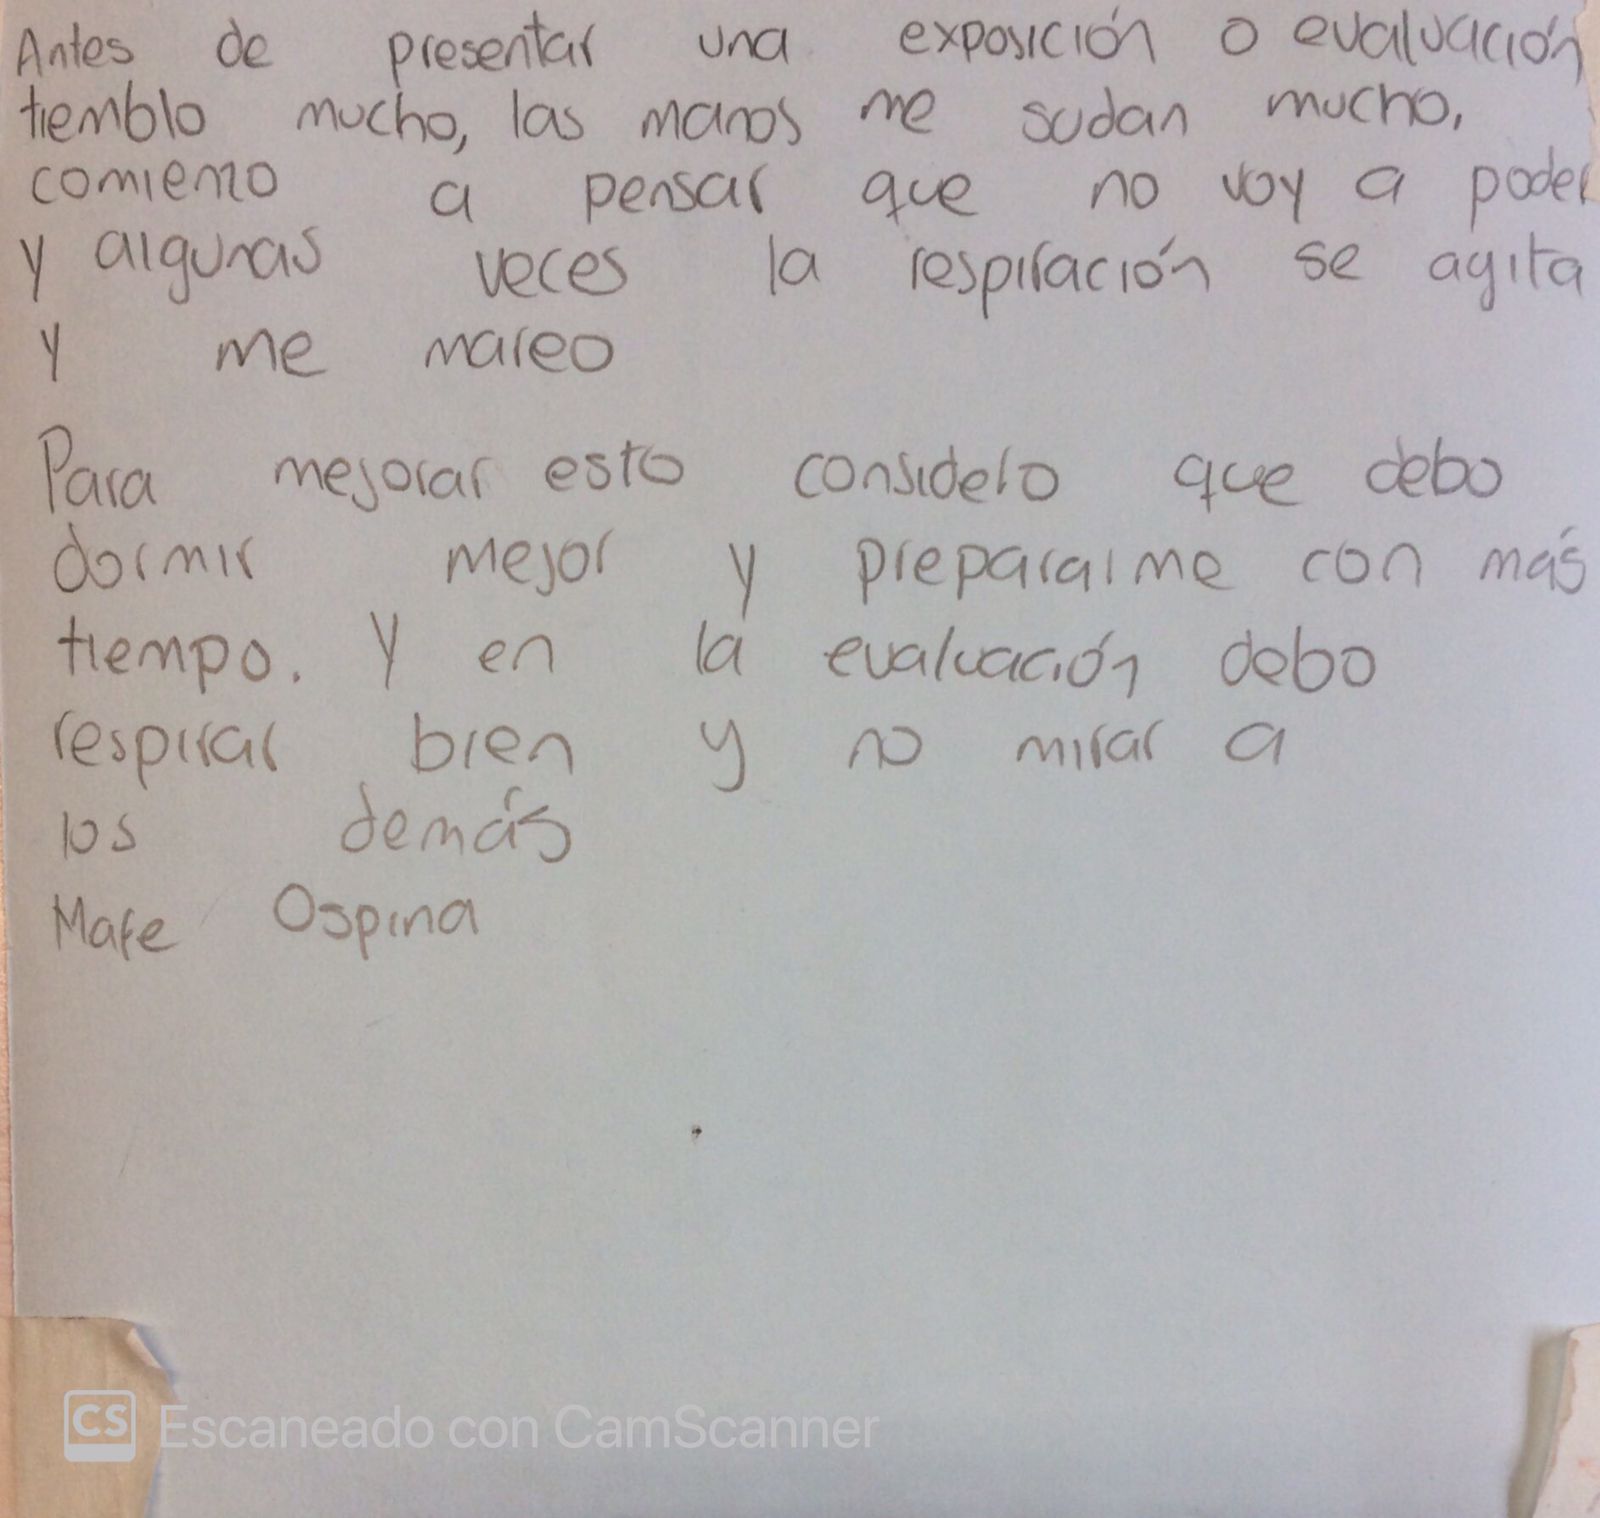 Antes de presentar una exposición o evaluación
tiemblo mucho, las manos me sudan mucho,
comienzo a pensar que no voy a poder
y algunas veces la respiración se agita
y me mareo
Para mejorar esto considero que debo
dormir mejor y prepararme con más
tiempo. Y en la evaluación debo
respirar bien y no mirar a
los demás
Mafe Ospina
CS Escaneado con CamScanner